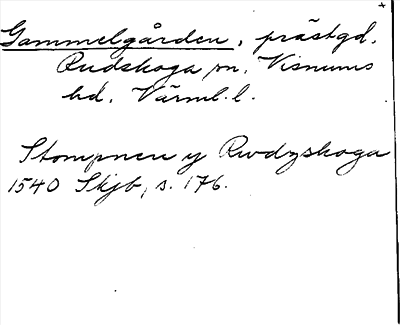 Gammelgården, prästgd.
Rudskoga sn. Visnums
hd. Värml. l.
Stompnen y Rwdzskoga
1540 Skjb, s. 176.